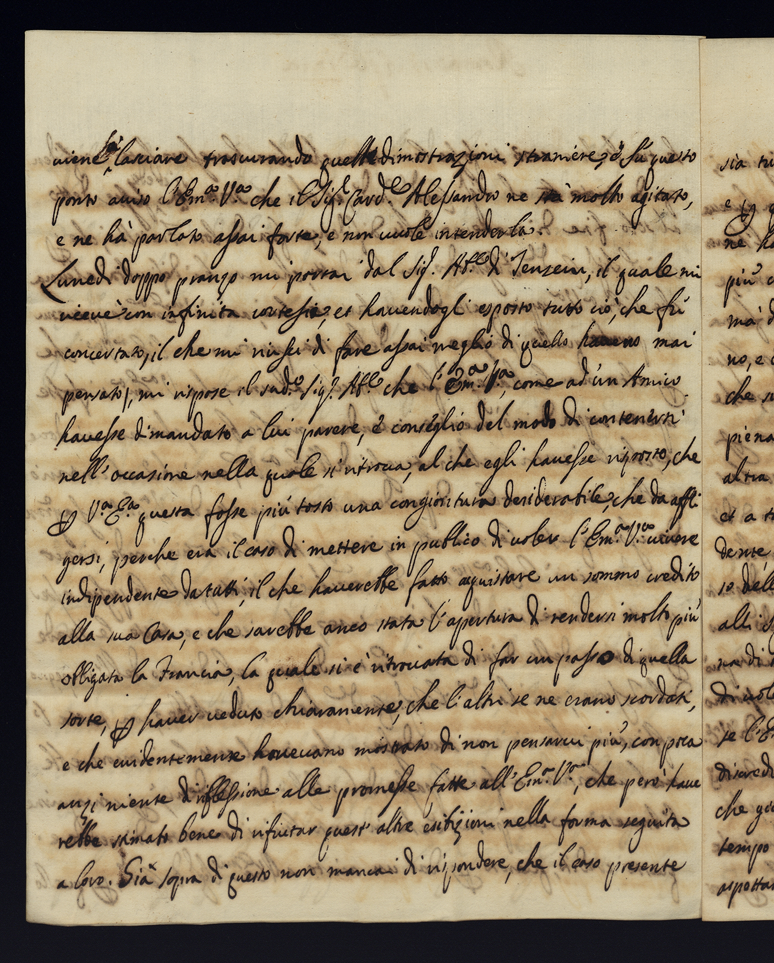 viene à lasciare trascurando quelle dimostrazioni straniere, e sù questo
ponto aviso l'Em.ª V.ª che il Sig.r Card.le Alessandro ne stà molto agitato,
e ne hà parlato assai forte, e non vuole intenderla.
Lunedì doppo pranzo mi portai dal Sig.r Abb.e di Tenzein, il quale mi
ricevè con infinita cortesia, et havendogli esposto tutto ciò, che fù
concertato, il che mi riuscì di fare assai meglio di quello havevo mai
pensato, mi rispose il sud.o Sig.r Abb.e che l'Em.ª V.ª, come ad un Amico
havesse dimandato a lui parere, e consiglio del modo di contenersi
nell'occasione nella quale si ritrova, al che egli havesse risposto, che
ꝑ V.ª E.ª questa fosse più tosto una congiontura desiderabile, che da affli
gersi, perche era il caso di mettere in publico di voler l'Em.ª V.ª vivere
independente da tutti, il che haverebbe fatto aquistare un sommo credito
alla sua Casa, e che sarebbe anco stata l'apertura di rendersi molto più
obligata la Francia, la quale si è ritrovata di far un passo di quella
sorte, ꝑ haver veduto chiaramente, che l'altri se ne erano scordati,
e che evidentemente havevano mostrato di non pensarvi più, con poca
anzi niente di riflessione alle promesse fatte all'Em.ª V.ª, che però have
rebbe stimato bene di rifiutar quest'altre esibizioni nella forma seguita
a loro. Già sopra di questo non mancai di rispondere, che il caso presente
sia tu
e ꝑ
ne h
più c
mà d
no, e
che s
piena
altra
et a t
dente
so dell
alli s
na di
di vol
se l'E
discred
che
tempo
aspettar